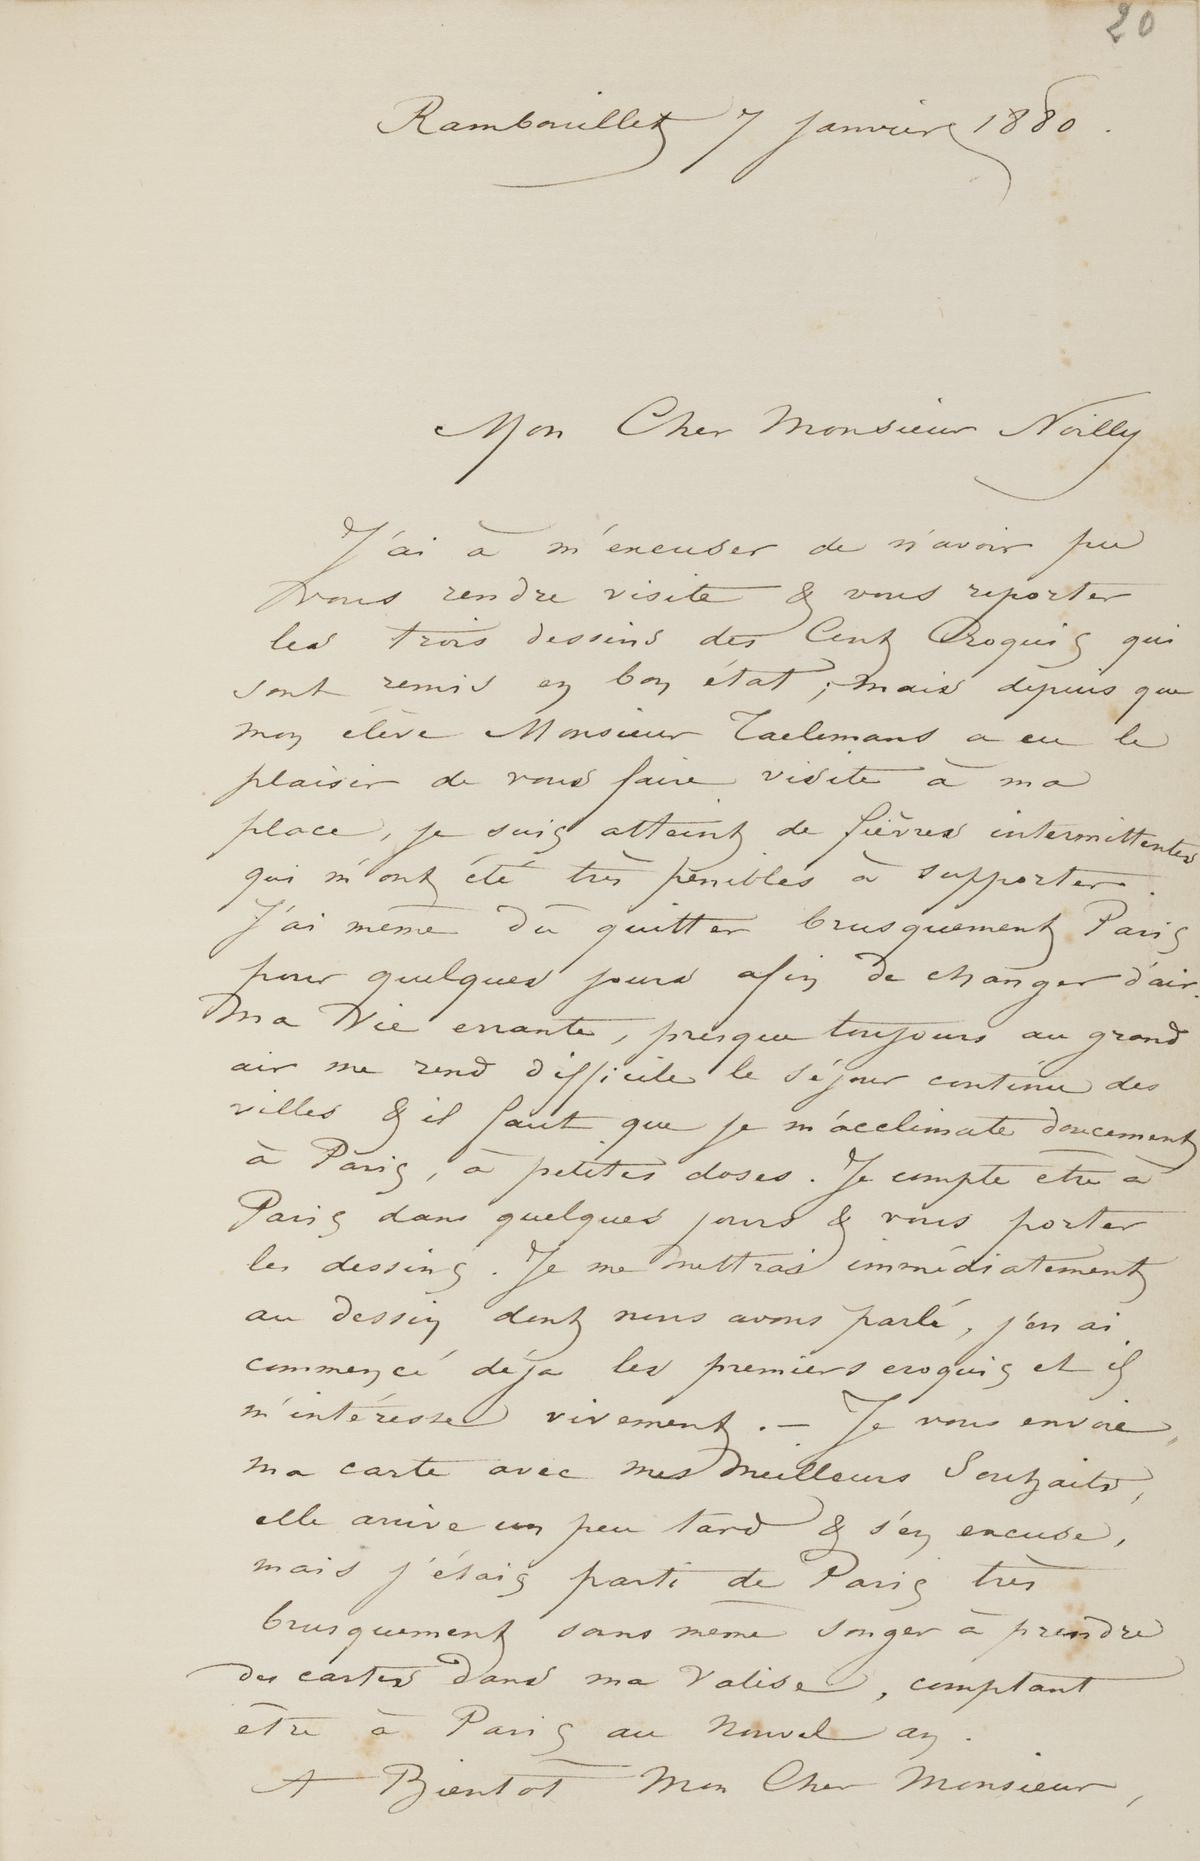 20
Rambouillet 7 Janvier 1880.
Mon Cher Monsieur Noilly
J'ai à m'excuser de n'avoir pu
vous rendre visite & vous reporter
les trois dessins des Cent Croquis qui
sont remis en bon état ; mais depuis que
mon élève Monsieur Taelemans a eu le
plaisir de vous faire visite à ma
place, je suis atteint de fièvres intermittentes
qui m'ont été très pénibles à supporter.
J'ai même dû quitter brusquement Paris
pour quelques jours afin de changer d'air.
Ma Vie errante, presque toujours au grand
air me rend difficile le séjour continu des
villes & il faut que je m'acclimate doucement
à Paris, à petites doses. Je compte être à
Paris dans quelques jours & vous porter
les dessins. Je me mettrai immédiatement
au dessin dont nous avons parlé, j'en ai
commencé déja les premiers croquis et il
m'intéresse vivement. — Je vous envoie
ma carte avec mes meilleurs Souhaits,
elle arrive un peu tard & s'en excuse,
mais j'étais parti de Paris très
brusquement sans même songer à prendre
des cartes dans ma Valise, comptant
être à Paris au Nouvel an.
A Bientôt Mon Cher Monsieur,